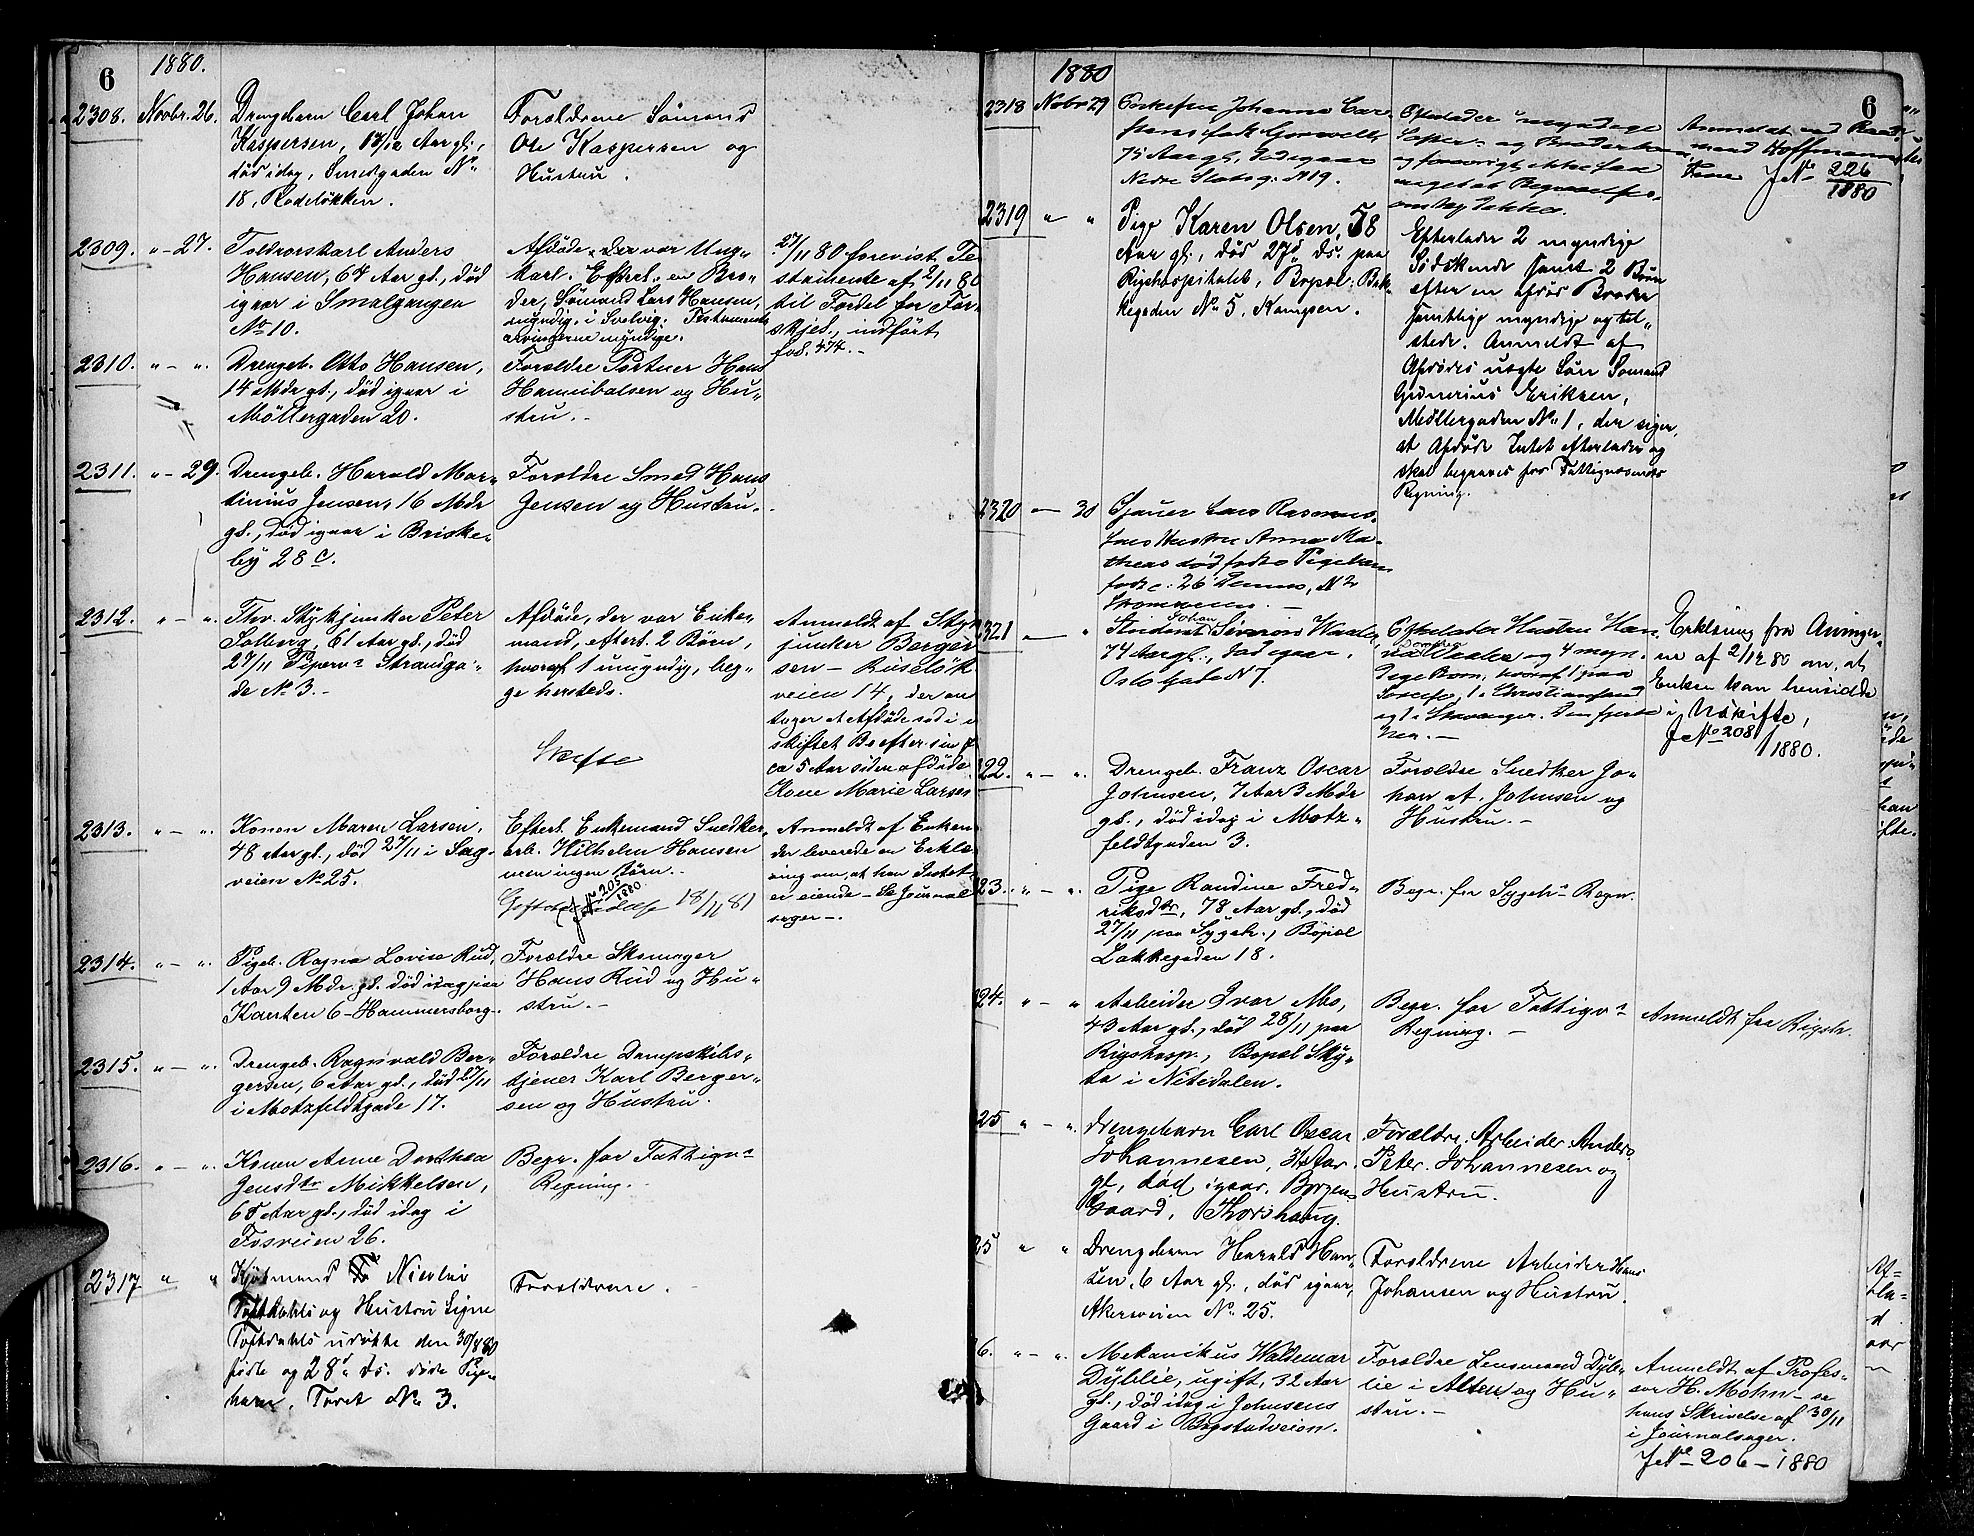 6
1880.
2308. Novbr. 26.
Drengebarn Carl Johan
Kaspersen, 1 3/12 Aar gl.,
död idag, Smedgaden No
18, Rodeløkken.
Forældrene Sömand
Ole Kaspersen og
Hustru.
2309. " - 27.
Toldvorskarl Anders
Hansen, 64 Aar gl., död
igaar i Smalgangen
No 10.
Afdöde, der var Ung-
karl. Efterl. en Bro-
der, Sömand Lars Hansen,
myndig, i Svelvig. Testaments
arvingerne myndige.
27/11 80 forevist Te
stamente af 2/11 80
til Fordel for For-
skjed., indfört
fol. 474.
2310. " - ".
Drengeb. Otto Hansen,
14 Mdr gl., död igaar i
Möllergaden 20.
Forældre Portner Hans
Hannibalsen og Hu-
stru.-
2311. " - 29.
Drengeb. Harald Mar-
tinius Jensen, 16 Mdr
gl., död igaar i Briske-
by 28 c.
Forældre Smed Hans
Jensen og Hustru.
2312. " - ".
Thv. Stykjunker Peter
Solberg, 61 Aar gl., död
27/11 Piperv. Strandga-
de No 3.-
Afdöde, der var Enke-
mand, efterl. 2 Börn,
hvoraf 1 umyndig, beg-
ge hersteds.
Skifte
Anmeldt af Styk
junker Berger
sen - Ruselök
veien 14, der an
tager at Afdöde sad i u
skiftet Bo efter sin f
ca 5 Aar siden afdöde
Kone Marie Larsen
2313. " - ".
Konen Maren Larsen,
48 Aar gl., död 27/11 i Sag-
veien No 25.
Efterl. Enkemand Snedker
arb. Wilhelm Hansen
men ingen Börn.
J No 205/1880
18/11 81
Anmeldt af Enkem
der leverede en Erklæ
ring om, at han Intet
er eiende - Se Journal
sager -.
2314. " - ".
Pigeb. Ragna Lovise Rud,
1 Aar 9 Mdr. gl. död idag paa
Kanten 6 - Hammersborg.
Forældre Skomager
Hans Rud og Hu-
stru.-
2315. " - ".
Drengeb. Ragnvald Ber-
gersen, 6 Aar gl., död 27/11
i Motzfeldtgade 17.
Forældre Dampskibs-
tjener Karl Berger-
sen og Hustru.
2316. " - ".
Konen Anne Dorthea
Jensdtr Mikkelsen,
65 Aar gl., död idag i
Fosveien 26.
Begr. for Fattigv.s
Regning.
2317 " "
Kjöbmand Nicolai
Toftdahls og Hustru Signe
Toftdahls udöbte den 30/8 80
födte og 28de ds. döde Pige-
barn, Torvet No 3.
Forældrene.
1880
6
2318 Nobr 29
Enkefru Johanne Car
75 Aar gl., død igaar
Nedre Slotsg. N 19.
Efterlader myndige
Söster- og Broderbørn
Anmeldt ved Raad-
mand Hoffmann
J No 226/1880
2319 " "
Pige Karen Olsen, 58
Aar gl., död 27de ds. paa
Rigshospitalet, Bopæl: Bak-
kegaden No 5, Kampen.
Efterlader 2 myndige
Södskende samt 2 Börn
efter en afdöd Broder
samtlige myndige og til-
stede. Anmeldt af
Afdödes uægte Sön Sömand
Gunerius Eriksen,
Møllergaden No 1, der siger,
at Afdöde Intet efterlader og
skal begraves for Fattigvæsenets
Regning.
2320 — 30
Sjauer Lars Rasmus-
sens Hustru Anna Ma-
theas død fødte Pigebarn
2321 — "
Student Johan Simon Waaler,
74 Aar gl., død igaar,
Oslo Gade N 7.
Efterlader Hustru Han
na Waaler og 4 myn-
dige Børn, hvoraf 1 paa
1 i Christianssand
og 1 i Stavanger. Den fjerde
her. —
Erklæring fra Arvinger-
ne af 2/12 80 om, at
Enken kan hensidde
i Uskifte,
J No 208/1880.
22. " - ".
Drengeb. Franz Oscar
Johnsen, 7 Aar 3 Mdr
gl., död idag i Motz-
feldtgaden 3.
Forældre Snedker Jo-
han A. Johnsen og
Hustru.-
23. " - ".
Pige Randine Fred-
riksdtr, 78 Aar gl., död
27/11 paa Sygeh., Bopæl
Lakkegaden 18.
Begr. for Sygeh.s Regn.
24. " - "
Arbeider Ivar Mo,
43 Aar gl., död 28/11 paa
Rigshosp., Bopæl Sky-
ta i Nitedalen.
Begr. for Fattigv.s
Regning. -
Anmeldt fra Rigsh.
25 " - ".
Drengebarn Carl Oscar
Johannesen, 3 1/2 Aar
gl., död igaar, Borgen-
Gaard, Thorshaug.
Forældre: Arbeider Anders
Peter Johannesen og
Hustru.
25 " "
Drengebarn Harald Han-
sen, 6 Aar gl., död igaar,
Akersveien No 25.
Forældrene Arbeider Hans
Johansen og Hustru.
6. " - ".
Mekanikus Waldemar
Dÿblie, ugift, 32 Aar
gl., död idag i Johnsens
Gaard i Bogstadveien.
Forældre Lensmand Dÿb-
lie i Alten og Hu-
stru.-
Anmeldt af Profes-
sor H. Mohn - se
hans Skrivelse af 30/11
i Journalsager.
J No 206 - 1880